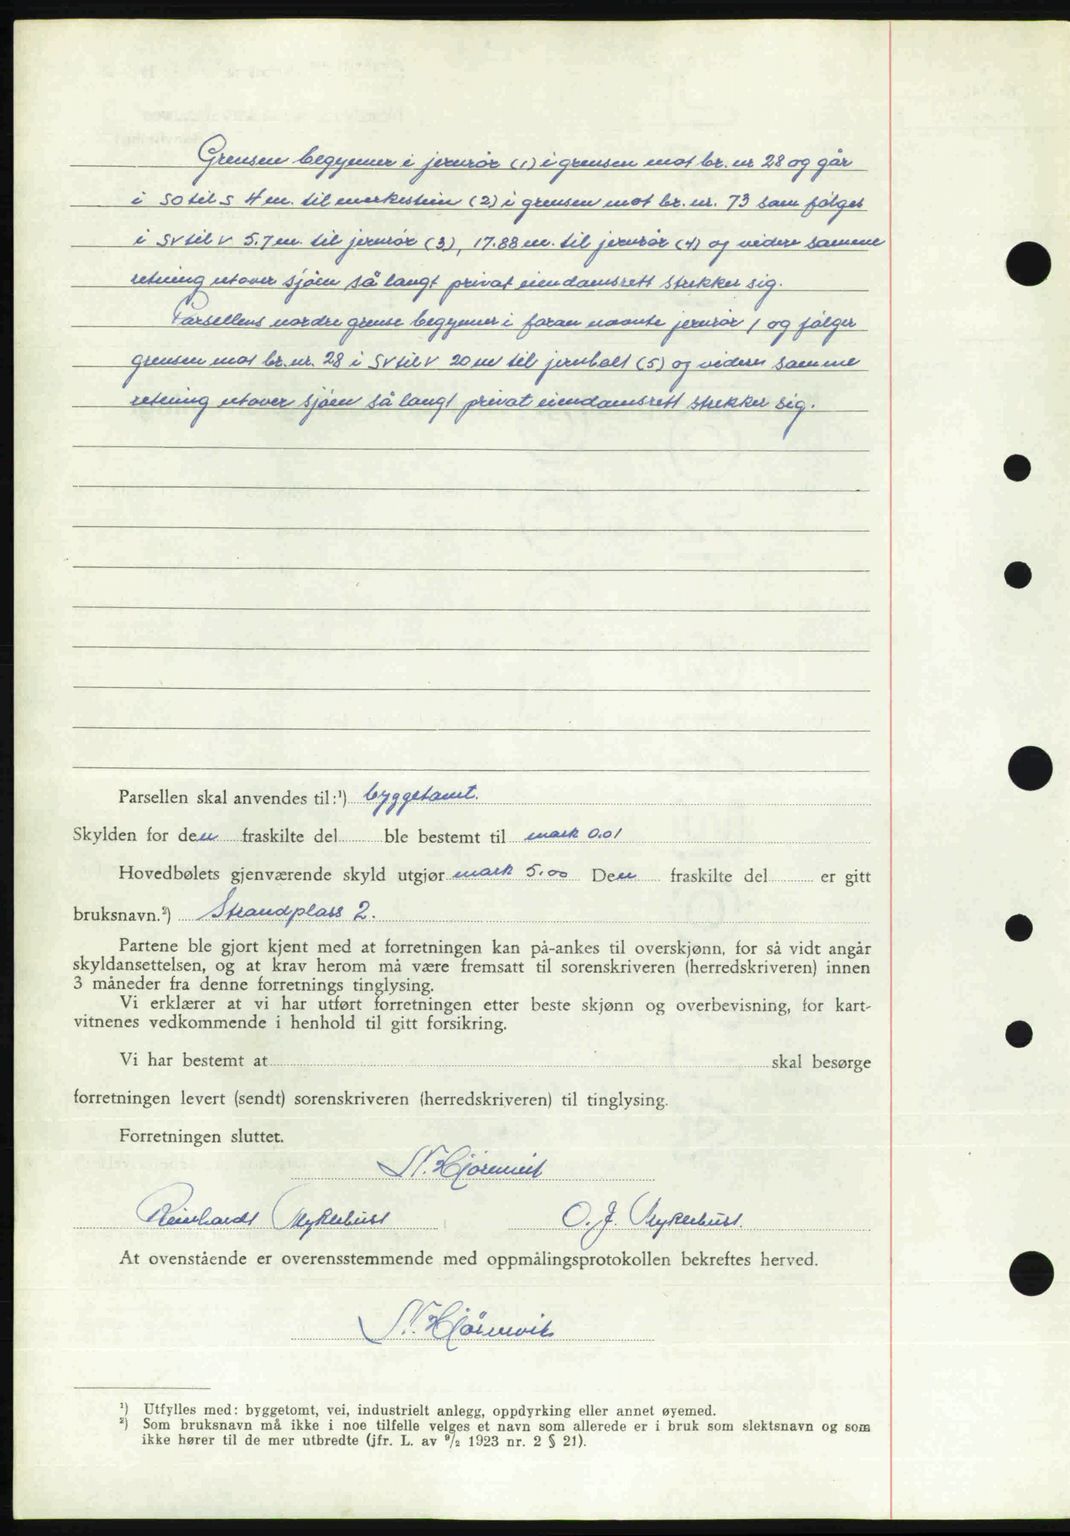 Grensen begynner i jernrör (1) i grensen mot br. nr 28 og går
i SO til S 4 m. til merkestein (2) i grensen mot br. nr. 73 som følges
i SV til V 5.7 m. til jernrör (3), 17.88 m. til jernrör (4) og videre samme
retning utover sjöen så langt privat eiendomsrett strekker sig.
Parsellens nordre grense begynner i foran nevnte jernrör 1 og fölger
grensen mot br. nr. 28 i SV til V 20 m til jernbolt (5) og videre samme
retning utover sjöen så langt privat eiendomsrett strekker sig.
Parsellen skal anvendes til:¹) byggetomt.
Skylden for den fraskilte del ble bestemt til mark 0.01
Hovedbølets gjenværende skyld utgjør mark 5.00 Den fraskilte del er gitt
bruksnavn.²) Strandplass 2.
Partene ble gjort kjent med at forretningen kan på-ankes til overskjønn, for så vidt angår
skyldansettelsen, og at krav herom må være fremsatt til sorenskriveren (herredskriveren) innen
3 måneder fra denne forretnings tinglysing.
Vi erklærer at vi har utført forretningen etter beste skjønn og overbevisning, for kart-
vitnenes vedkommende i henhold til gitt forsikring.
Vi har bestemt at skal besørge
forretningen levert (sendt) sorenskriveren (herredskriveren) til tinglysing.
Forretningen sluttet.
N. Hjörnevik
Reinhardt Myklebust O. J. Myklebust.
At ovenstående er overensstemmende med oppmålingsprotokollen bekreftes herved.
N. Hjörnevik
¹) Utfylles med: byggetomt, vei, industrielt anlegg, oppdyrking eller annet øyemed.
²) Som bruksnavn må ikke i noe tilfelle velges et navn som allerede er i bruk som slektsnavn og som
ikke hører til de mer utbredte (jfr. L. av ⁹/₂ 1923 nr. 2 § 21).